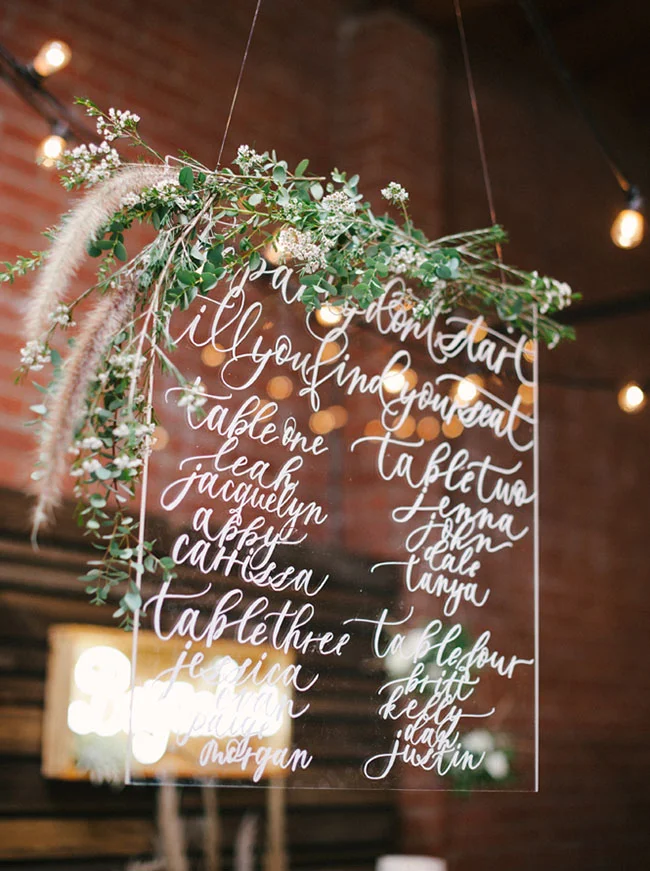 party don't start
'till you find your seat
table one
leah
jacquelyn
abby
carrissa
table two
jenna
john
dale
tanya
table three
jessica
evan
paige
morgan
table four
britt
kelly
dan
justin